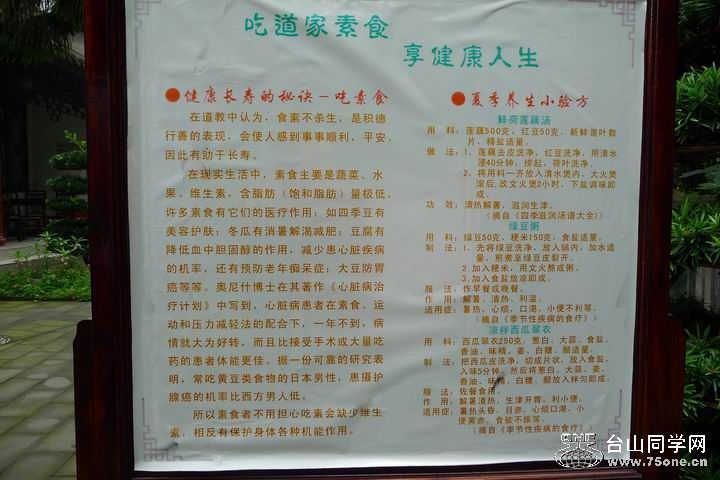 吃道家素食
享健康人生
●健康长寿的秘诀—吃素食
在道教中认为，食素不杀生，是积德
行善的表现，会使人感到事事顺利，平安、
因此有助于长寿。
在现实生活中，素食主要是蔬菜、水
果、维生素，含脂肪（饱和脂肪）量极低。
许多素食有它们的医疗作用：如四季豆有
美容护肤；冬瓜有消暑解渴减肥；豆腐有
降低血中胆固醇的作用，减少患心脏疾病
的机率，还有预防老年痴呆症；大豆防胃
癌等等。奥尼什博士在其著作《心脏病治
疗计划》中写到，心脏病患者在素食、运
动和压力减轻法的配合下，一年不到，病
情就大为好转，而且比接受手术或大量吃
药的患者体能更佳。据一份可靠的研究表
明，常吃黄豆类食物的日本男性，患摄护
腺癌的机率比西方男人低。
所以素食者不用担心吃素会缺少维生
素，相反有保护身体各种机能作用。
●夏季养生小验方
鲜荷莲藕汤
用 料：莲藕500克，红豆50克，新鲜莲叶数
片，精盐适量。
做 法：1、莲藕去皮洗净，红豆洗净，用清水
浸40分钟，捞起，荷叶洗净。
2、将用料一齐放入清水煲内，大火煲
滚后.改文火煲2小时，下盐调味即
成。
功 效：清热解暑，滋润生津。
（摘自《四季滋润汤谱大全》）
绿豆粥
用 料：绿豆50克，粳米150克，食盐适量。
制 法：1.先将绿豆洗净，放入锅内，加水适
量，煎煮至绿豆皮裂开。
2.加入粳米，用文火熬成粥。
3.加入食盐放凉即成。
服 法：作早餐或晚餐。
作 用：解暑、清热、利温。
适用症：暑热，心烦，口渴，小便不利等。
（摘自《季节性疾病的食疗》）
凉拌西瓜翠衣
用 料：西瓜翠衣250克，葱白、大蒜、食盐、
香油、味精、姜、白糖、醋适量。
制 法：把西瓜皮洗净，切成片状，放入食盐，
入味5分钟。然后将葱白、大蒜、姜、
香油、味精、白糖、醋放入拌匀即成。
服 法：佐餐食用。
作 用：解暑清热，生津开胃，利小便。
适用症：暑热头昏，目赤，心烦口渴，小
便黄赤，食欲不振等。
（摘自《季节性疾病的食疗》）
台山同学网
www.75one.cn